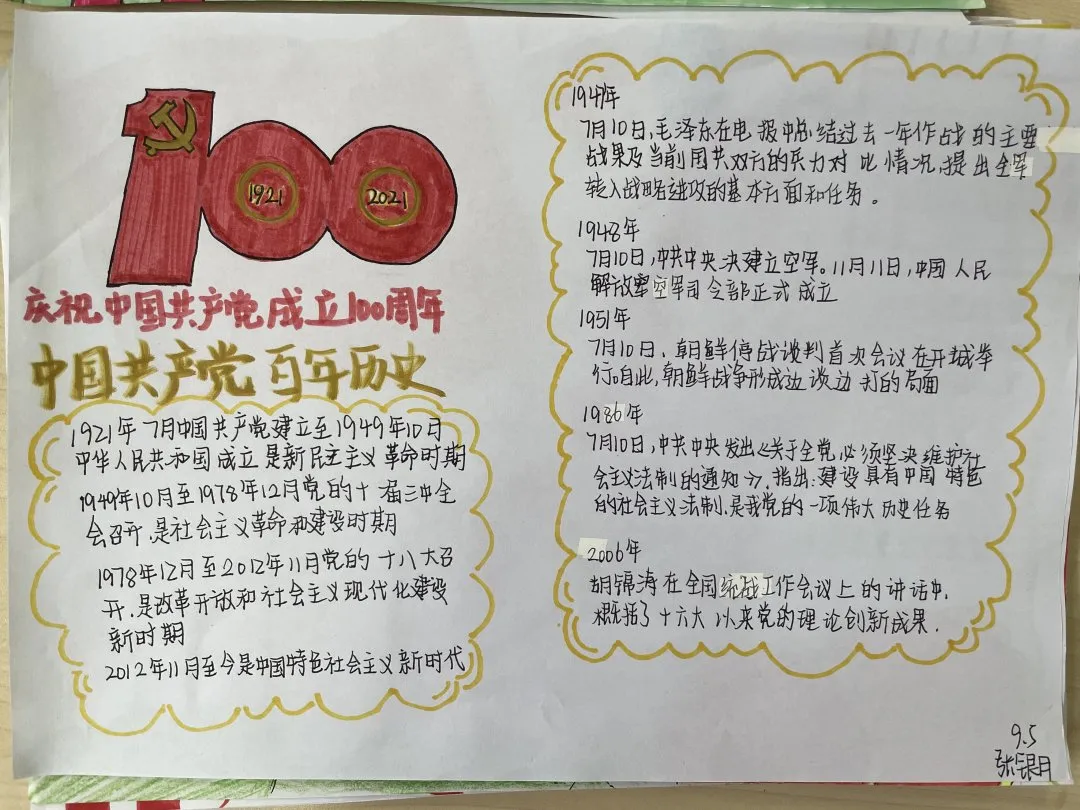 1921
2021
庆祝中国共产党成立100周年
中国共产党百年历史
1921年7月中国共产党建立至1949年10月
中华人民共和国成立是新民主主义革命时期
1949年10月至1978年12月党的十一届三中全
会召开,是社会主义革命和建设时期
1978年12月至2012年11月党的十八大召
开,是改革开放和社会主义现代化建设
新时期
2012年11月至今是中国特色社会主义新时代
1947年
7月10日,毛泽东在电报中总结过去一年作战的主要
战果及当前国共双方的兵力对比情况,提出全军
转入战略进攻的基本方面和任务。
1948年
7月10日,中共中央决建立空军。11月11日,中国人民
解放军空军司令部正式成立
1951年
7月10日,朝鲜停战谈判首次会议在开城举
行。自此,朝鲜战争形成边谈边打的局面
1986年
7月10日,中共中央发出《关于全党必须坚决维护社
会主义法制的通知》,指出:建设具有中国特色
的社会主义法制,是我党的一项伟大历史任务
2006年
胡锦涛在全国统战工作会议上的讲话中,
概括了十六大以来党的理论创新成果.
9.5
张银月